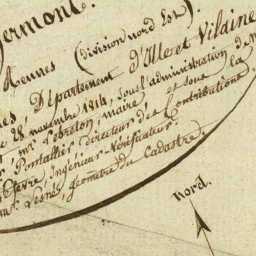 Vermont.
Rennes (Division nord Est).
Département d'Ille et Vilaine
28 novembre 1814, sous l'administration de
mr Lebreton, maire, et sous la
Pontallier, Directeur des Contributions,
fèvre, Ingénieur-Vérificateur;
mr Lesné, géomètre du Cadastre.
Nord.